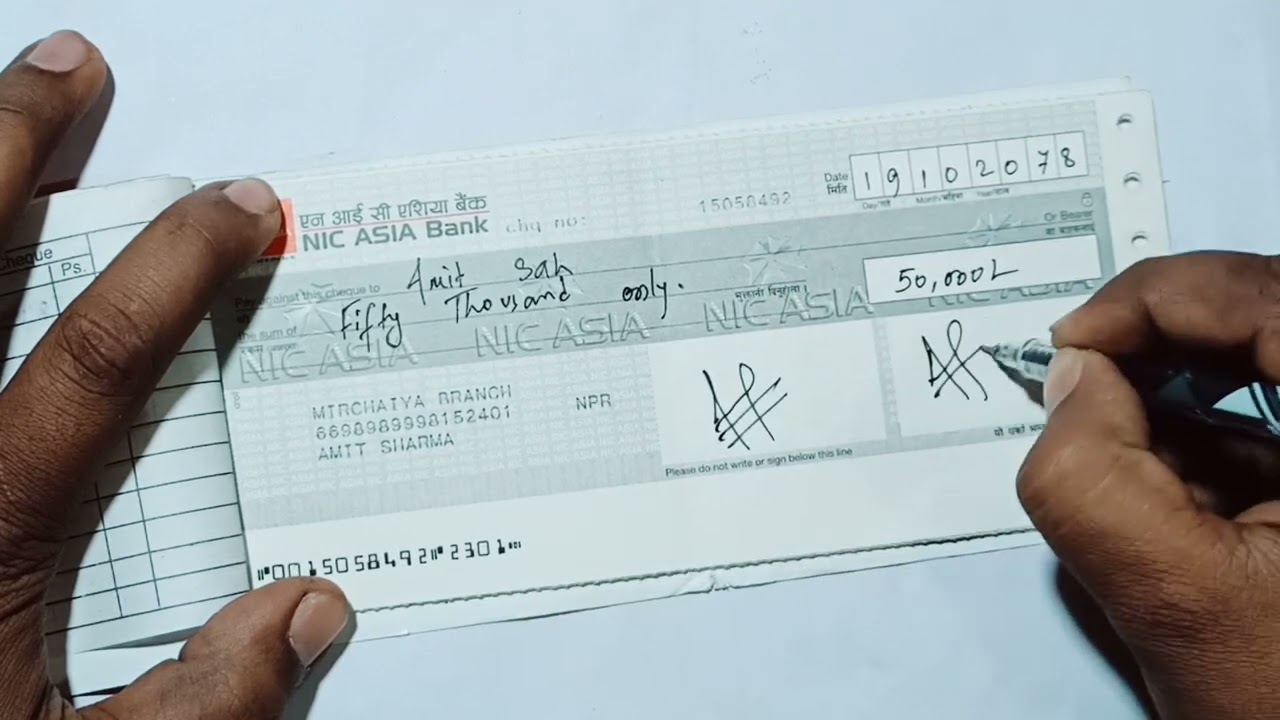 Cheque
Ps.
एन आई सी एशिया बैंक
NIC ASIA Bank
chq no:
15058492
Date
मिति
19102078
Or Bearer
Pay against this cheque to
Amit Sah
The sum of
Fifty Thousand only.
50,000/-
NIC ASIA NIC ASIA NIC ASIA NIC ASIA
MIRCHAIYA BRANCH
6698989998152401
AMIT SHARMA
NPR
Please do not write or sign below this line
⑈0015058492⑈2301⑉